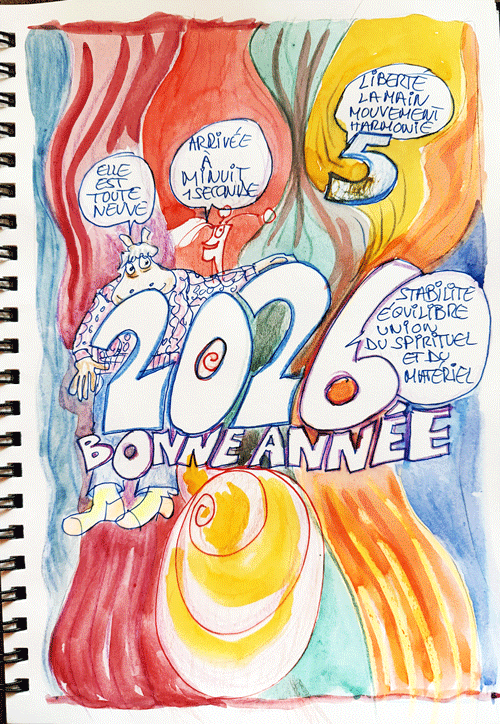 LIBERTÉ
LA MAIN
MOUVEMENT
HARMONIE
5
ARRIVÉE
A
MINUIT
1 SECONDE
ELLE
EST
TOUTE
NEUVE
2026
STABILITÉ
EQUILIBRE
UNION
DU SPIRITUEL
ET DU
MATERIEL
BONNE ANNÉE